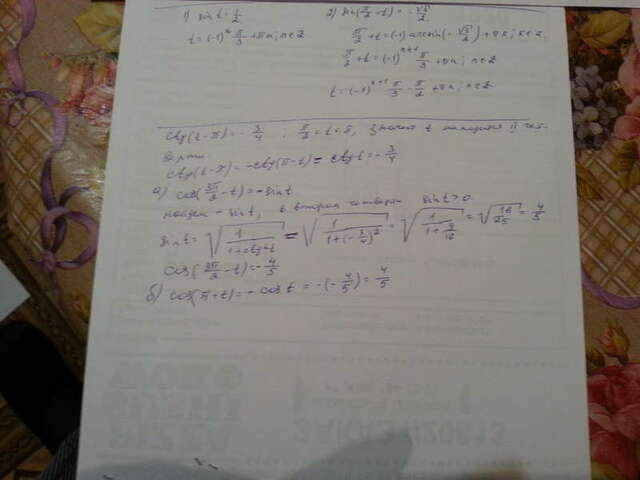 1) sin t = 1/2
t = (-1)^n π/3 + πn; n∈Z
2) sin(π/2 + t) = -√3/2
π/2 + t = (-1) arcsin(-√3/2) + πn; n∈Z
π/2 + t = (-1)^{n+1} π/3 + πn; n∈Z
t = (-1)^{n+1} π/3 - π/2 + πn; n∈Z
ctg(t-π) = -3/4, π/2 < t < π, Значит t находится II чет-
верти
ctg(t-π) = -ctg(π-t) = ctg t = -3/4
а) cos(3π/2 - t) = -sin t
найдем -sin t, в второй четверти sin t > 0
sin t = √(1/(1+ctg²t)) = √(1/(1+(-3/4)²)) = √(1/(1+9/16)) = √(16/25) = 4/5
cos(3π/2 - t) = -4/5
б) cos(π+t) = -cos t = -(-4/5) = 4/5